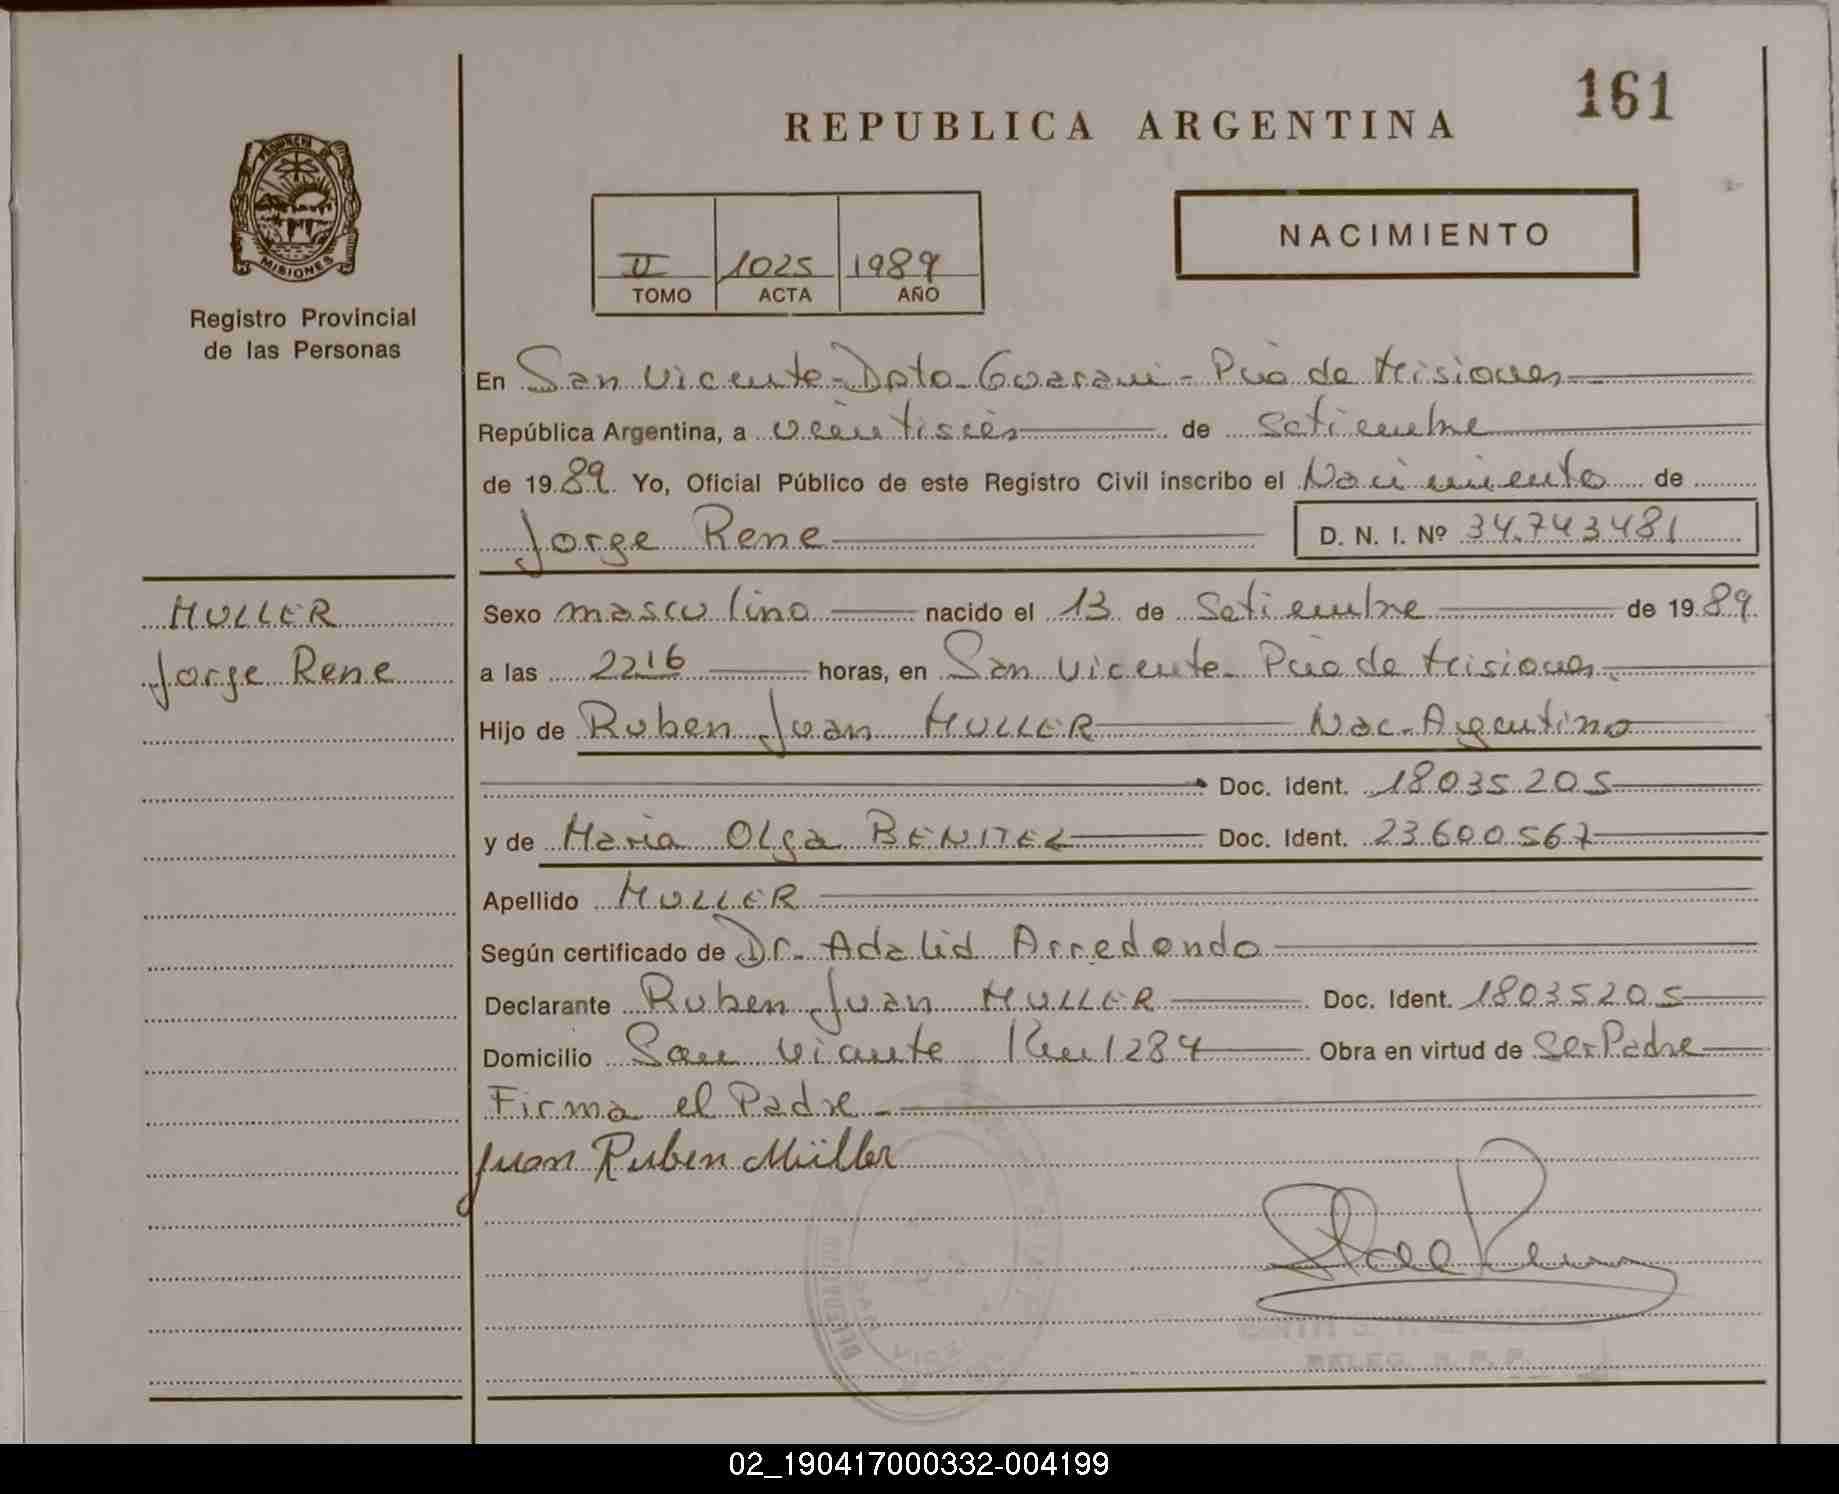 161
REPUBLICA ARGENTINA
PROVINCIA DE
MISIONES
Registro Provincial
de las Personas
II 1025 1989
TOMO ACTA AÑO
NACIMIENTO
En San Vicente - Dpto. Guarani - Pcia de Misiones
República Argentina, a veintiseis de Setiembre
de 1989 Yo, Oficial Público de este Registro Civil inscribo el Nacimiento de
Jorge Rene D. N. I. Nº 34.743481
MULLER
Jorge Rene
Sexo masculino nacido el 13 de Setiembre de 1989
a las 2216 horas, en San Vicente - Pcia de Misiones
Hijo de Ruben Juan MULLER Nac. Argentino
Doc. Ident. 18035205
y de Maria Olga BENITEZ Doc. Ident. 23.600567
Apellido MULLER
Según certificado de Dr. Adalid Arredondo
Declarante Ruben Juan MULLER Doc. Ident. 18035205
Domicilio San Vicente Km 1284 Obra en virtud de Ser Padre
Firma el Padre -
Juan Ruben Müller
02_190417000332-004199